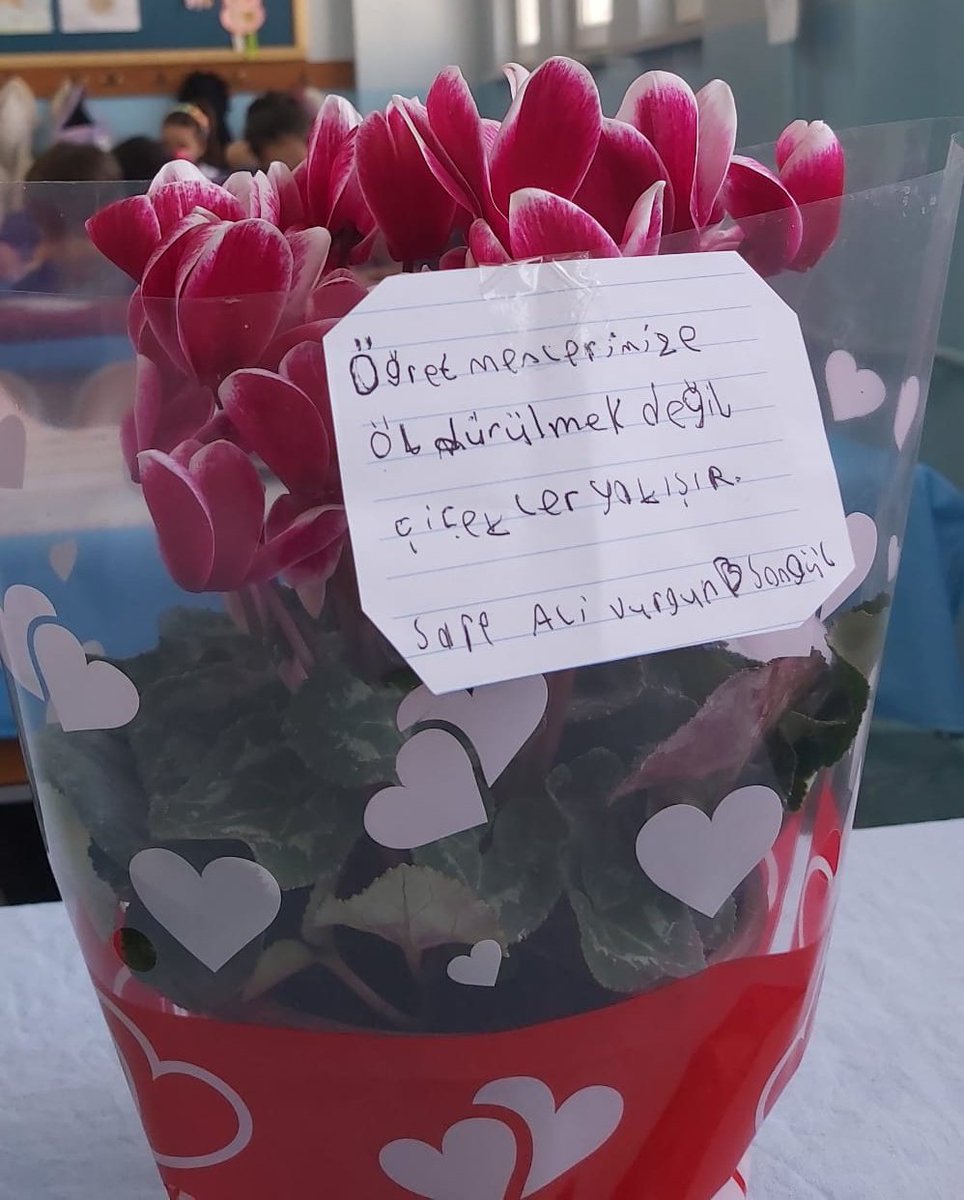 Öğretmenlerimize
öldürülmek değil
çiçekler yakışır.
Ali vurgun Songül